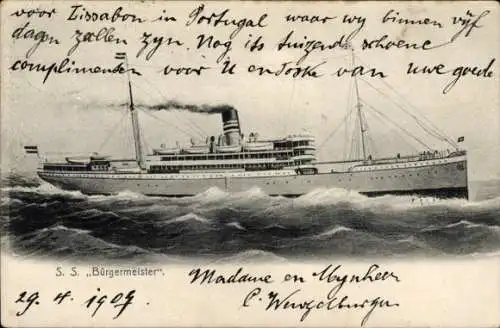 voor Lissabon in Portugal waar wy binnen vyf
dagen zullen zyn. Nog its tuizend schoene
complimenten voor U en doske van uwe goede
S. S. „Bürgermeister".
Madame en Mynheer
29. 4. 1909.
C. Wurzelburger